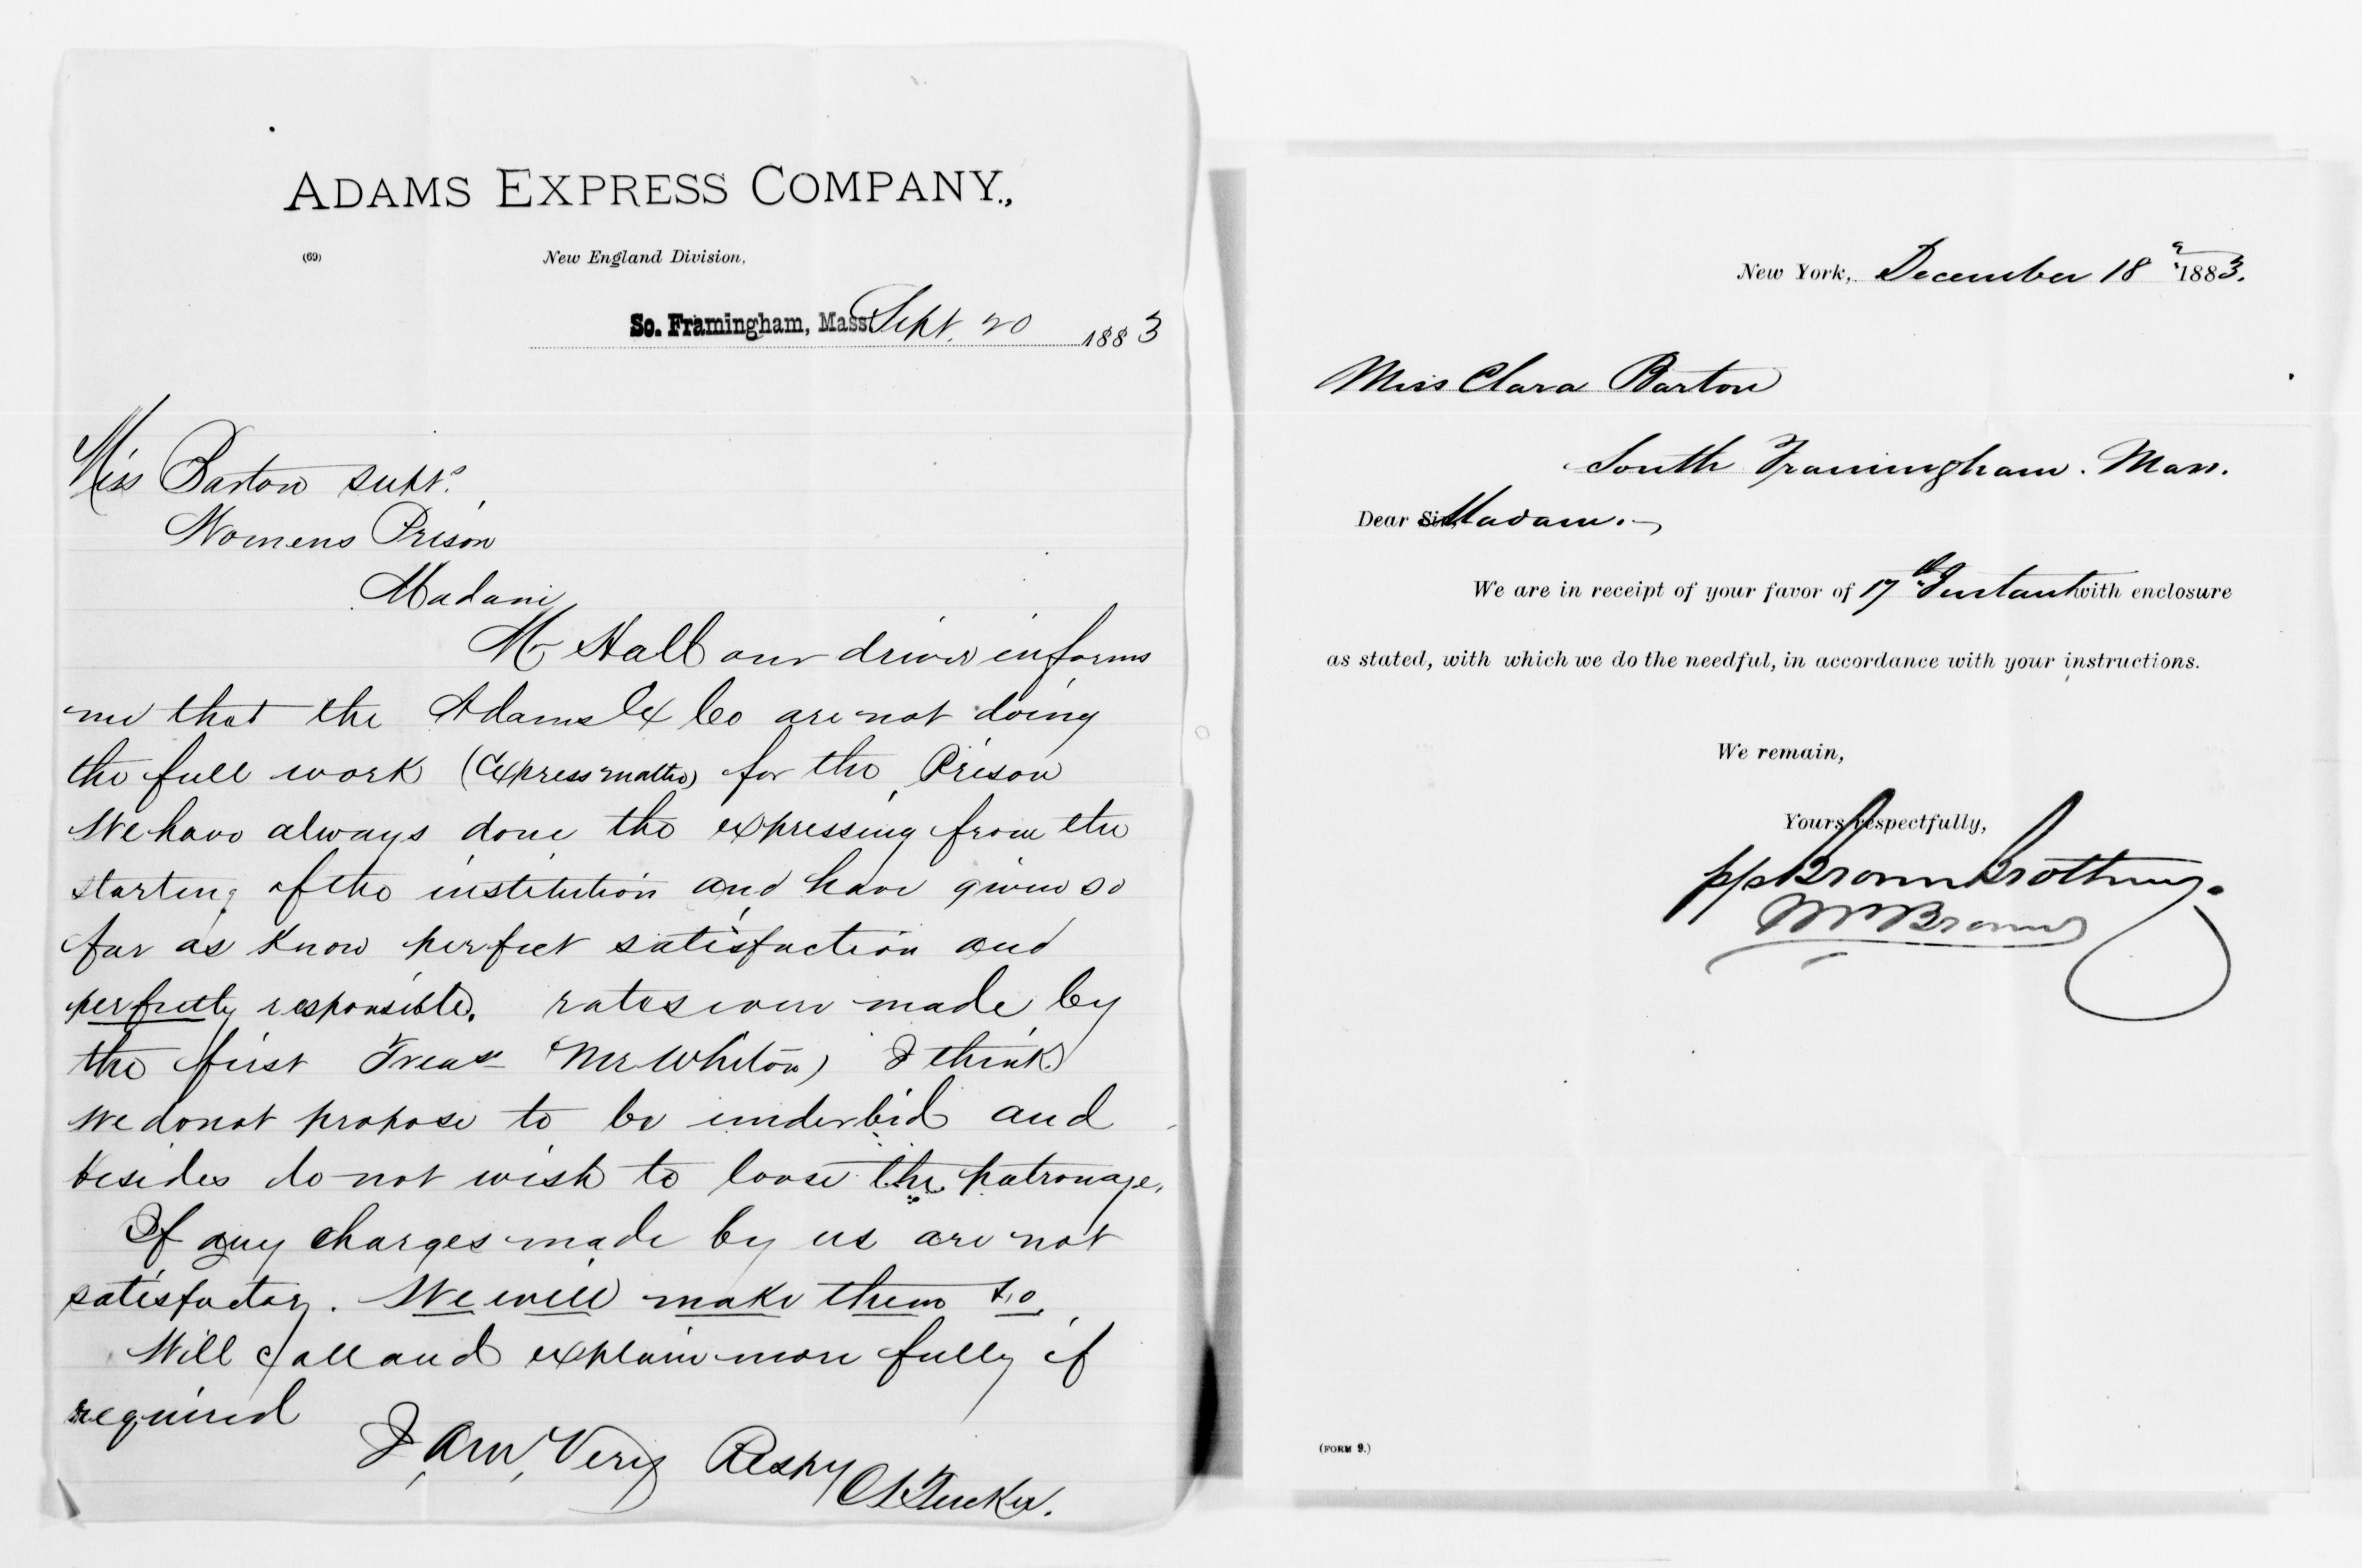 ADAMS EXPRESS COMPANY.,
(69) New England Division.
So. Framingham, Mass. Sept. 20 1883
Miss Barton Supt.
Womens Prison
Madam
Mr Hall our driver informs
me that the Adams Ex Co are not doing
the full work (Express matter) for the Prison
We have always done the expressing from the
starting of the institution and have given so
far as know perfect satisfaction and
perfectly responsible. rates were made by
the first Treas Mr Whiton) I think
We do not propose to be underbid and
besides do not wish to loose the patronage.
If any charges made by us are not
satisfactory. We will make them so.
Will call and explain more fully if
required
I Am, Very Respy
Tucker.
New York, December 18 1883.
Miss Clara Barton
South Framingham. Mass.
Dear Sir, Madam.
We are in receipt of your favor of 17th Instant with enclosure
as stated, with which we do the needful, in accordance with your instructions.
We remain,
Yours respectfully,
pp Brown Brothers
Brown
(FORM 9.)